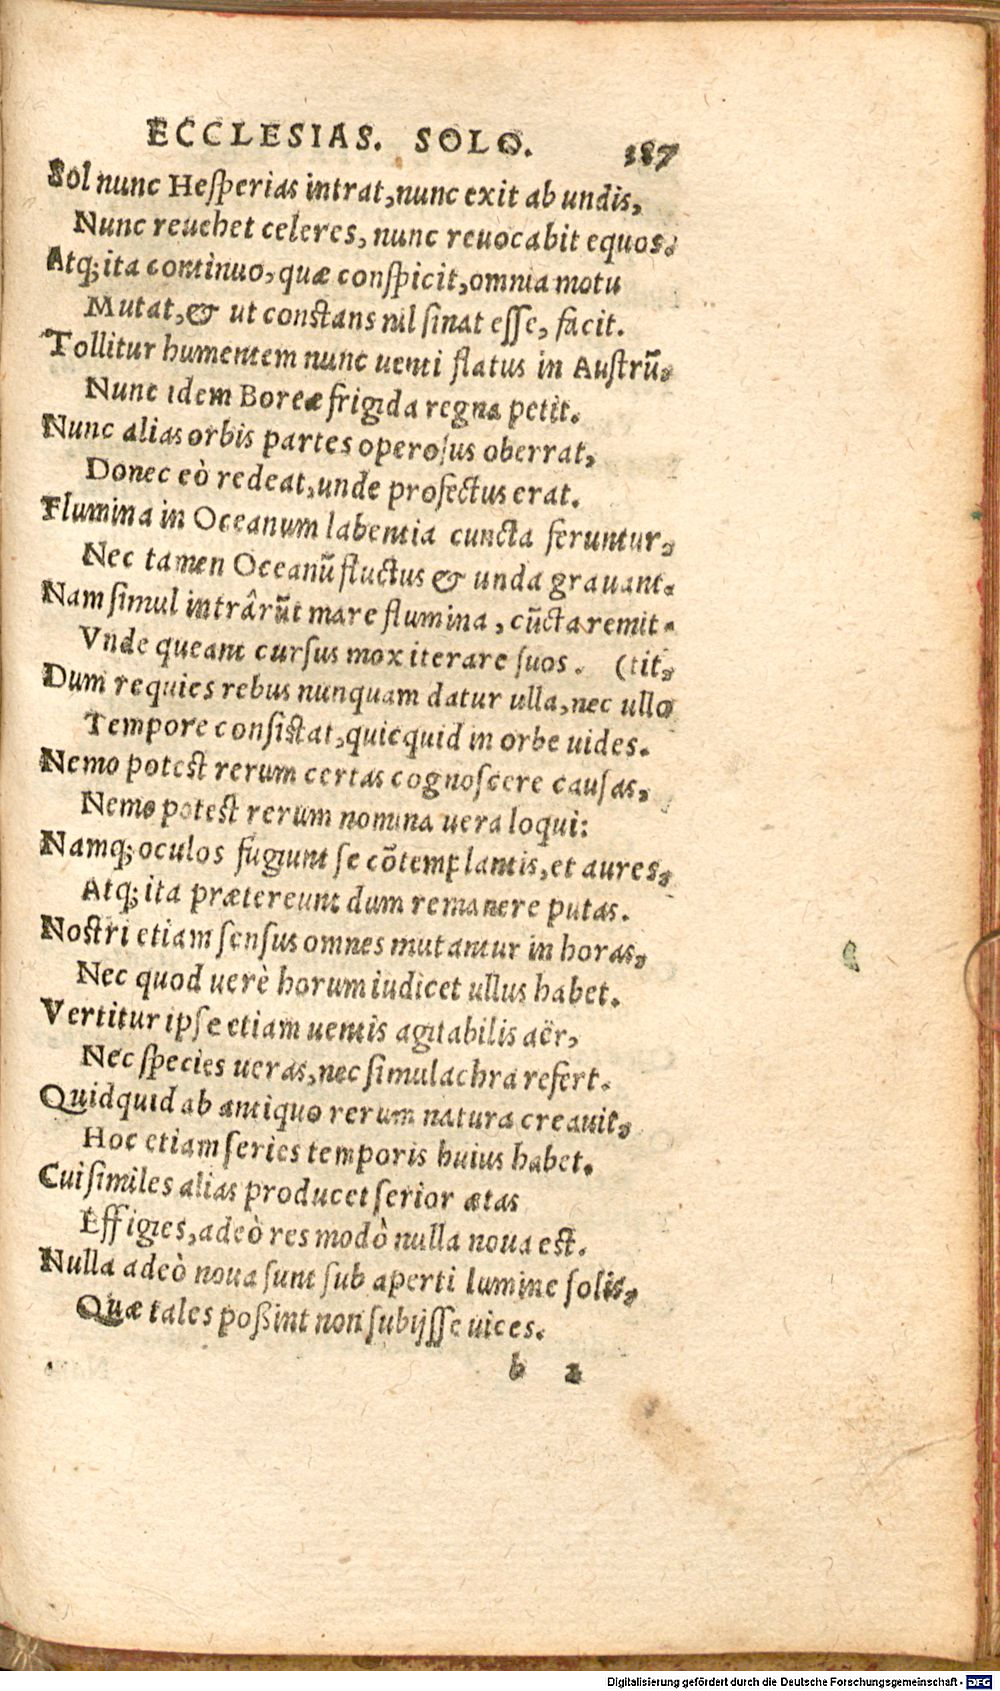 ECCLESIAS. SOLO. 187
Sol nunc Hesperias intrat, nunc exit ab undis,
Nunc reuehet celeres, nunc reuocabit equos.
Atq; ita continuo, quæ conspicit, omnia motu
Mutat, & ut constans nil sinat esse, facit.
Tollitur humentem nunc uenti flatus in Austrū,
Nunc idem Boreæ frigida regna petit.
Nunc alias orbis partes operosus oberrat,
Donec eò redeat, unde profectus erat.
Flumina in Oceanum labentia cuncta feruntur,
Nec tamen Oceanū fluctus & unda grauant.
Nam simul intrârūt mare flumina, cūcta remit-
Vnde queant cursus mox iterare suos. (tit,
Dum requies rebus nunquam datur ulla, nec ullo
Tempore consistat, quicquid in orbe uides.
Nemo potest rerum certas cognoscere causas,
Nemo potest rerum nomina uera loqui:
Namq; oculos fugiunt se cōtemplantis, et aures,
Atq; ita prætereunt dum remanere putas.
Nostri etiam sensus omnes mutantur in horas,
Nec quod uerè horum iudicet ullus habet.
Vertitur ipse etiam uentis agitabilis aër,
Nec species ueras, nec simulachra refert.
Quidquid ab antiquo rerum natura creauit,
Hoc etiam series temporis huius habet.
Cui similes alias producet serior ætas
Effigies, adeò res modò nulla noua est.
Nulla adeò noua sunt sub aperti lumine solis,
Quæ tales poßint non subijsse uices.
b 2
Digitalisierung gefördert durch die Deutsche Forschungsgemeinschaft - DFG